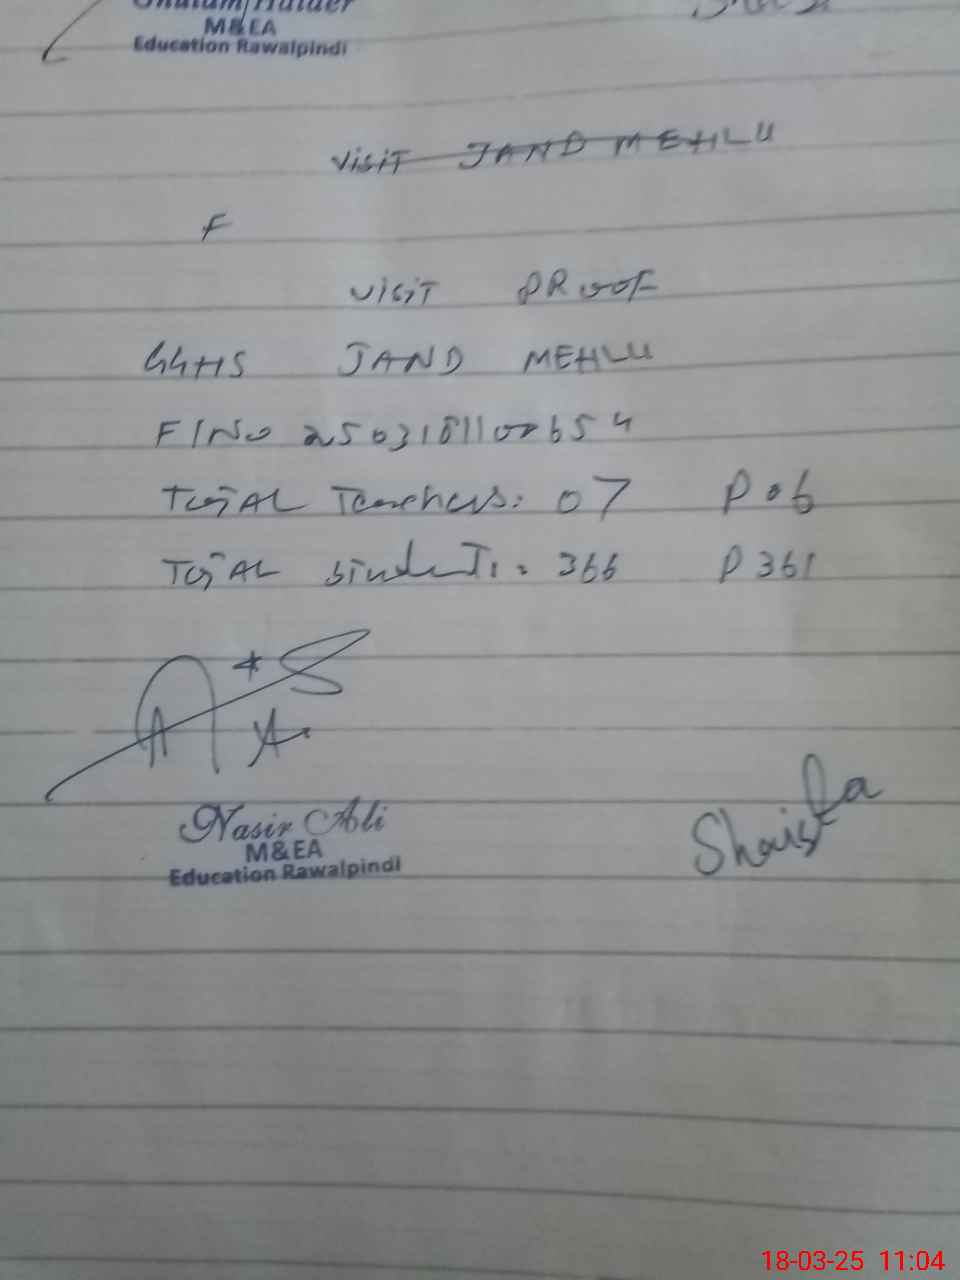 Ghulam Haider
M&EA
Education Rawalpindi
VISIT JAND MEHLU
F
VISIT PROOF
GGHS JAND MEHLU
FINO 25031811002654
TOTAL Teachers: 07 P 06
TOTAL Students: 366 P 361
Nasir Ali
M&EA
Education Rawalpindi
Shaista
18-03-25 11:04